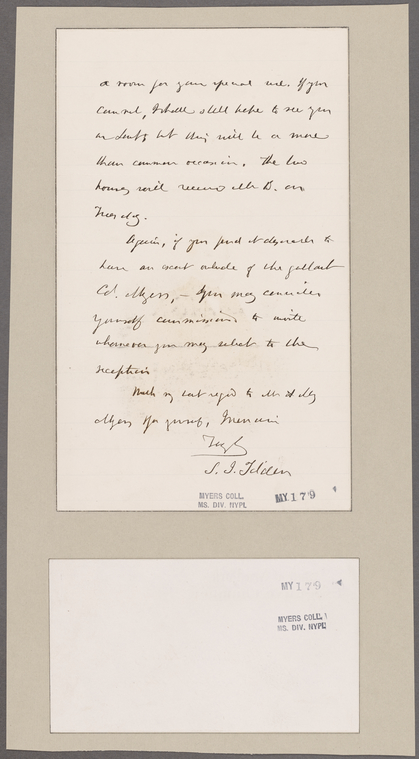 a room for your special use. If you
cannot, I shall still hope to see you
on but this will be a more
than common occasion. The two
houses will receive Mr B. on
Tuesday.
Again, if you find it desirable to
have an escort outside of the gallant
Col. Myers, – you may consider
yourself commissioned to invite
whomever you may select to the
reception
With my best regard to Mr & Mrs
Myers & for yourself, I remain
Truly
S. J. Tilden
MYERS COLL.
MS. DIV. NYPL
MY 179
MY 179
MYERS COLL.
MS. DIV. NYPL